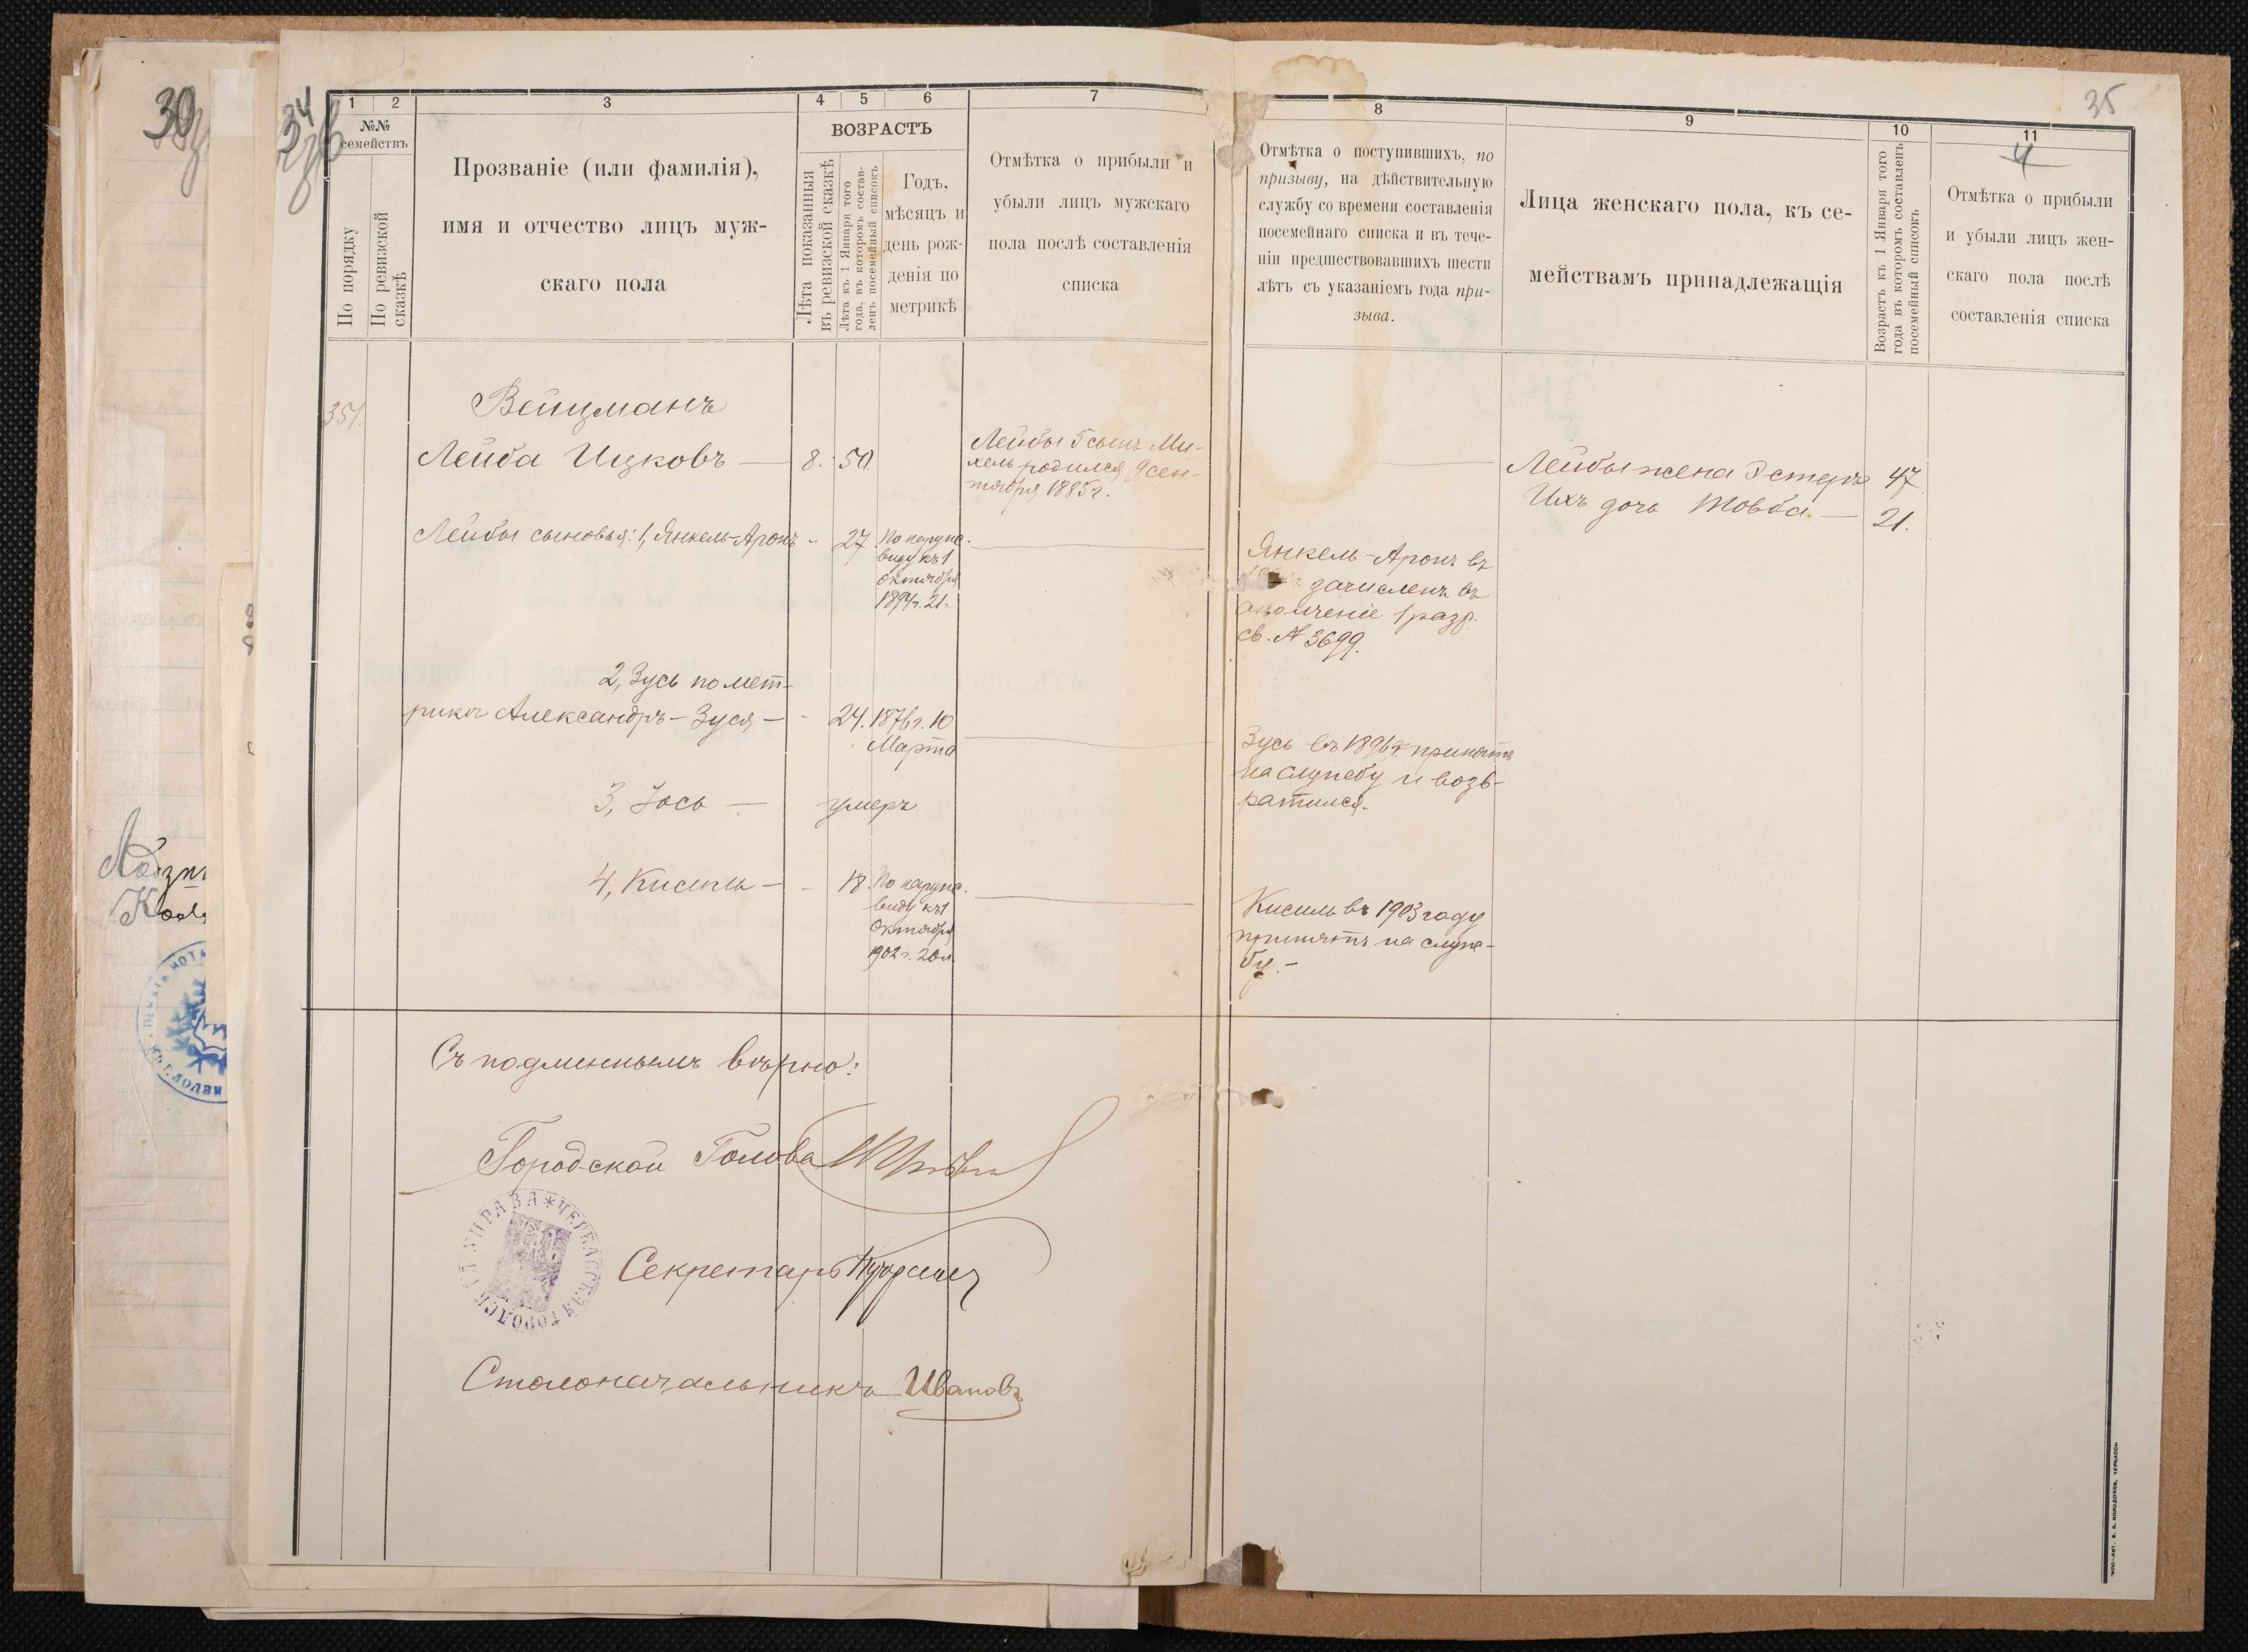 30
34
35
1 2 3 4 5 6 7
№№
семействъ
По порядку
По ревизской
сказкѣ
Прозваніе (или фамилія),
имя и отчество лицъ муж-
скаго пола
ВОЗРАСТЪ
Лѣта показанныя
въ ревизской сказкѣ
Лѣта къ 1 Января того
года, въ которомъ состав-
ленъ посемейный списокъ
Годъ,
мѣсяцъ и
день рож-
денія по
метрикѣ
Отмѣтка о прибыли и
убыли лицъ мужскаго
пола послѣ составленія
списка
8 9 10 11
Отмѣтка о поступившихъ, по
призыву, на дѣйствительную
службу со времени составленія
посемейнаго списка и въ тече-
ніи предшествовавшихъ шести
лѣтъ съ указаніемъ года при-
зыва.
Лица женскаго пола, къ се-
мействамъ принадлежащія
Возрастъ къ 1 Января того
года въ которомъ составленъ
посемейный списокъ
4
Отмѣтка о прибыли
и убыли лицъ жен-
скаго пола послѣ
составленія списка
351.
Вейцманъ
Лейба Ицковъ — 8. 50
Лейбы 5 сынъ Ми-
хель родился 9 сен-
тября 1885 г.
Лейбы жена Эстеръ 47.
Ихъ дочь Товба — 21.
Лейбы сыновья: 1, Янкель-Аронъ - 27
По наружн.
виду къ 1
октября
1894 г. 21 г.
Янкель-Аронъ въ
зачисленъ въ
ополченіе 1 разр.
св. № 3699.
2, Зусь по мет-
рикѣ Александръ-Зуся — - 24.
1876 г. 10
Марта
Зусь въ 1896 г. принятъ
на службу и возв-
ратился.
3, Іось — умеръ
4, Кисиль — - 18.
По наружн.
виду къ 1
Октября
1902 г. 20 л.
Кисиль въ 1903 году
принятъ на служ-
бу. -
Съ подлиннымъ вѣрно:
Городской Голова
ЧЕРКАССКАЯ ГОРОДСКАЯ УПРАВА
Секретарь
Столоначальникъ Ивановъ